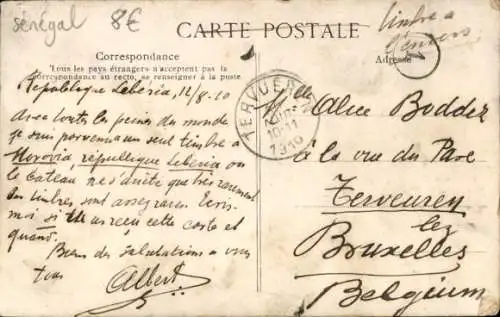 Sénégal 8€
CARTE POSTALE
timbre a
l'envers
Correspondance
Tous les pays étrangers n'acceptent pas la
correspondance au recto, se renseigner à la poste
Adresse
République Libéria, 12/8-10
Avec toutes les peines du monde
je suis parvenu a un seul timbre a
Morovia, république Libéria ou
le bateau ne s'arrête que très rarement
les timbres sont assez rares. Ecris-
moi si tu as reçu cette carte et
quand.
Bien des salutations a vous
tous
Albert
TERVUEREN
10-11
1910
Mlle Alice Boddez
à la rue du Parc
Terveuren
lez
Bruxelles
Belgium